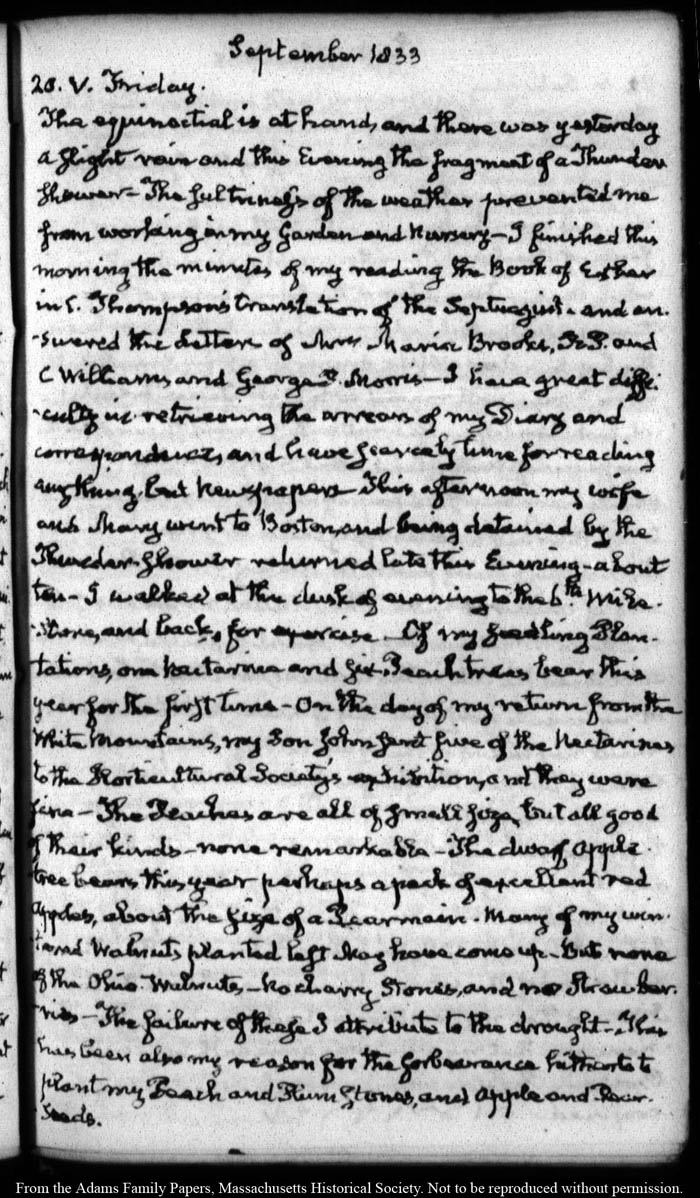 September 1833
20. V. Friday.
The equinoctial is at hand, and there was yesterday
a slight rain and this Evening the fragment of a Thunder
Shower — The sultriness of the weather prevented me
from working in my Garden and Nursery — I finished this
morning the minutes of my reading the Book of Esther
in C. Thompson's translation of the Septuagint. and an-
swered the Letters of Mrs Maria Brooks, and
C Williams, and George P. Morris — I have great diffi-
culty in retrieving the arrears of my Diary and
correspondence, and have scarcely time for reading
any thing but Newspapers — This afternoon my wife
and Mary went to Boston, and being detained by the
Thunder-Shower returned late this Evening — about
ten — I walked at the dusk of evening to the 6th Mile-
Stone, and back, for exercise — Of my seedling Plan-
tations, one Nectarine and six Peach trees bear this
year for the first time — On the day of my return from the
White Mountains, my Son John sent five of the Nectarines
to the Horticultural Society's exhibition, and they were
fine — The Peaches are all of small size, but all good
of their kinds — none remarkable — The dwarf apple-
tree bears this year perhaps a peck of excellent red
apples, about the size of a Pearmain. Many of my win-
tered Walnuts planted last May have come up — But none
of the Ohio Walnuts — no cherry Stones, and no Strawber-
ries — The failure of these I attribute to the drought — This
has been also my reason for the forbearance hitherto to
plant my Peach and Plum Stones, and Apple and Pear-
Seeds.
From the Adams Family Papers, Massachusetts Historical Society. Not to be reproduced without permission.